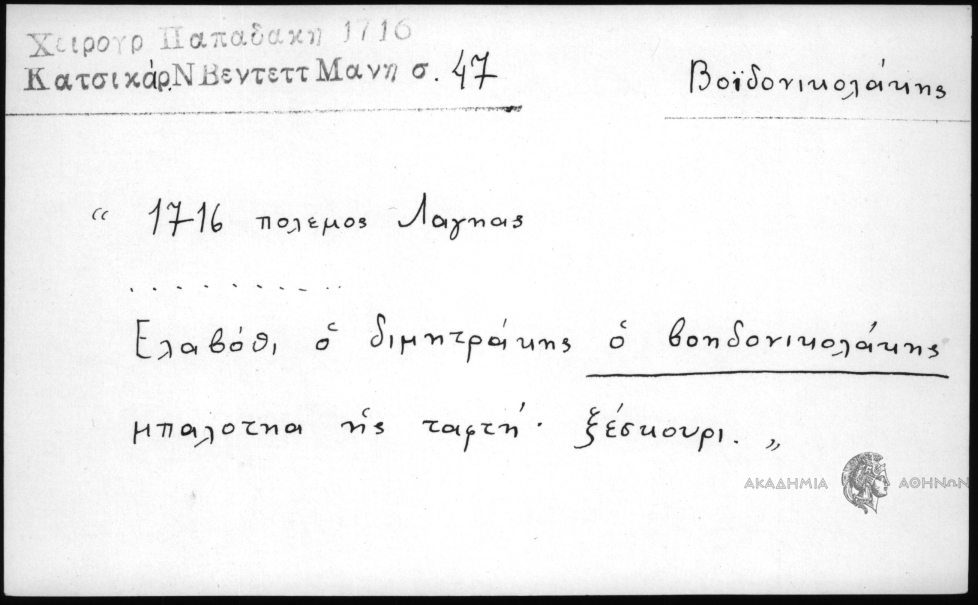 Χειρογρ Παπαδακη 1716
Κατσικάρ. Ν Βεντεττ Μανη σ. 47
Βοϊδονικολάκης
“ 1716 πολεμος Λαγηας
. . . . . . . . . .
Ελαβόθι ὁ διμητράκης ὁ βοηδονικολάκης
μπαλοτηα ἠς ταφτή · ξέσκουρι. „
ΑΚΑΔΗΜΙΑ ΑΘΗΝΩΝ